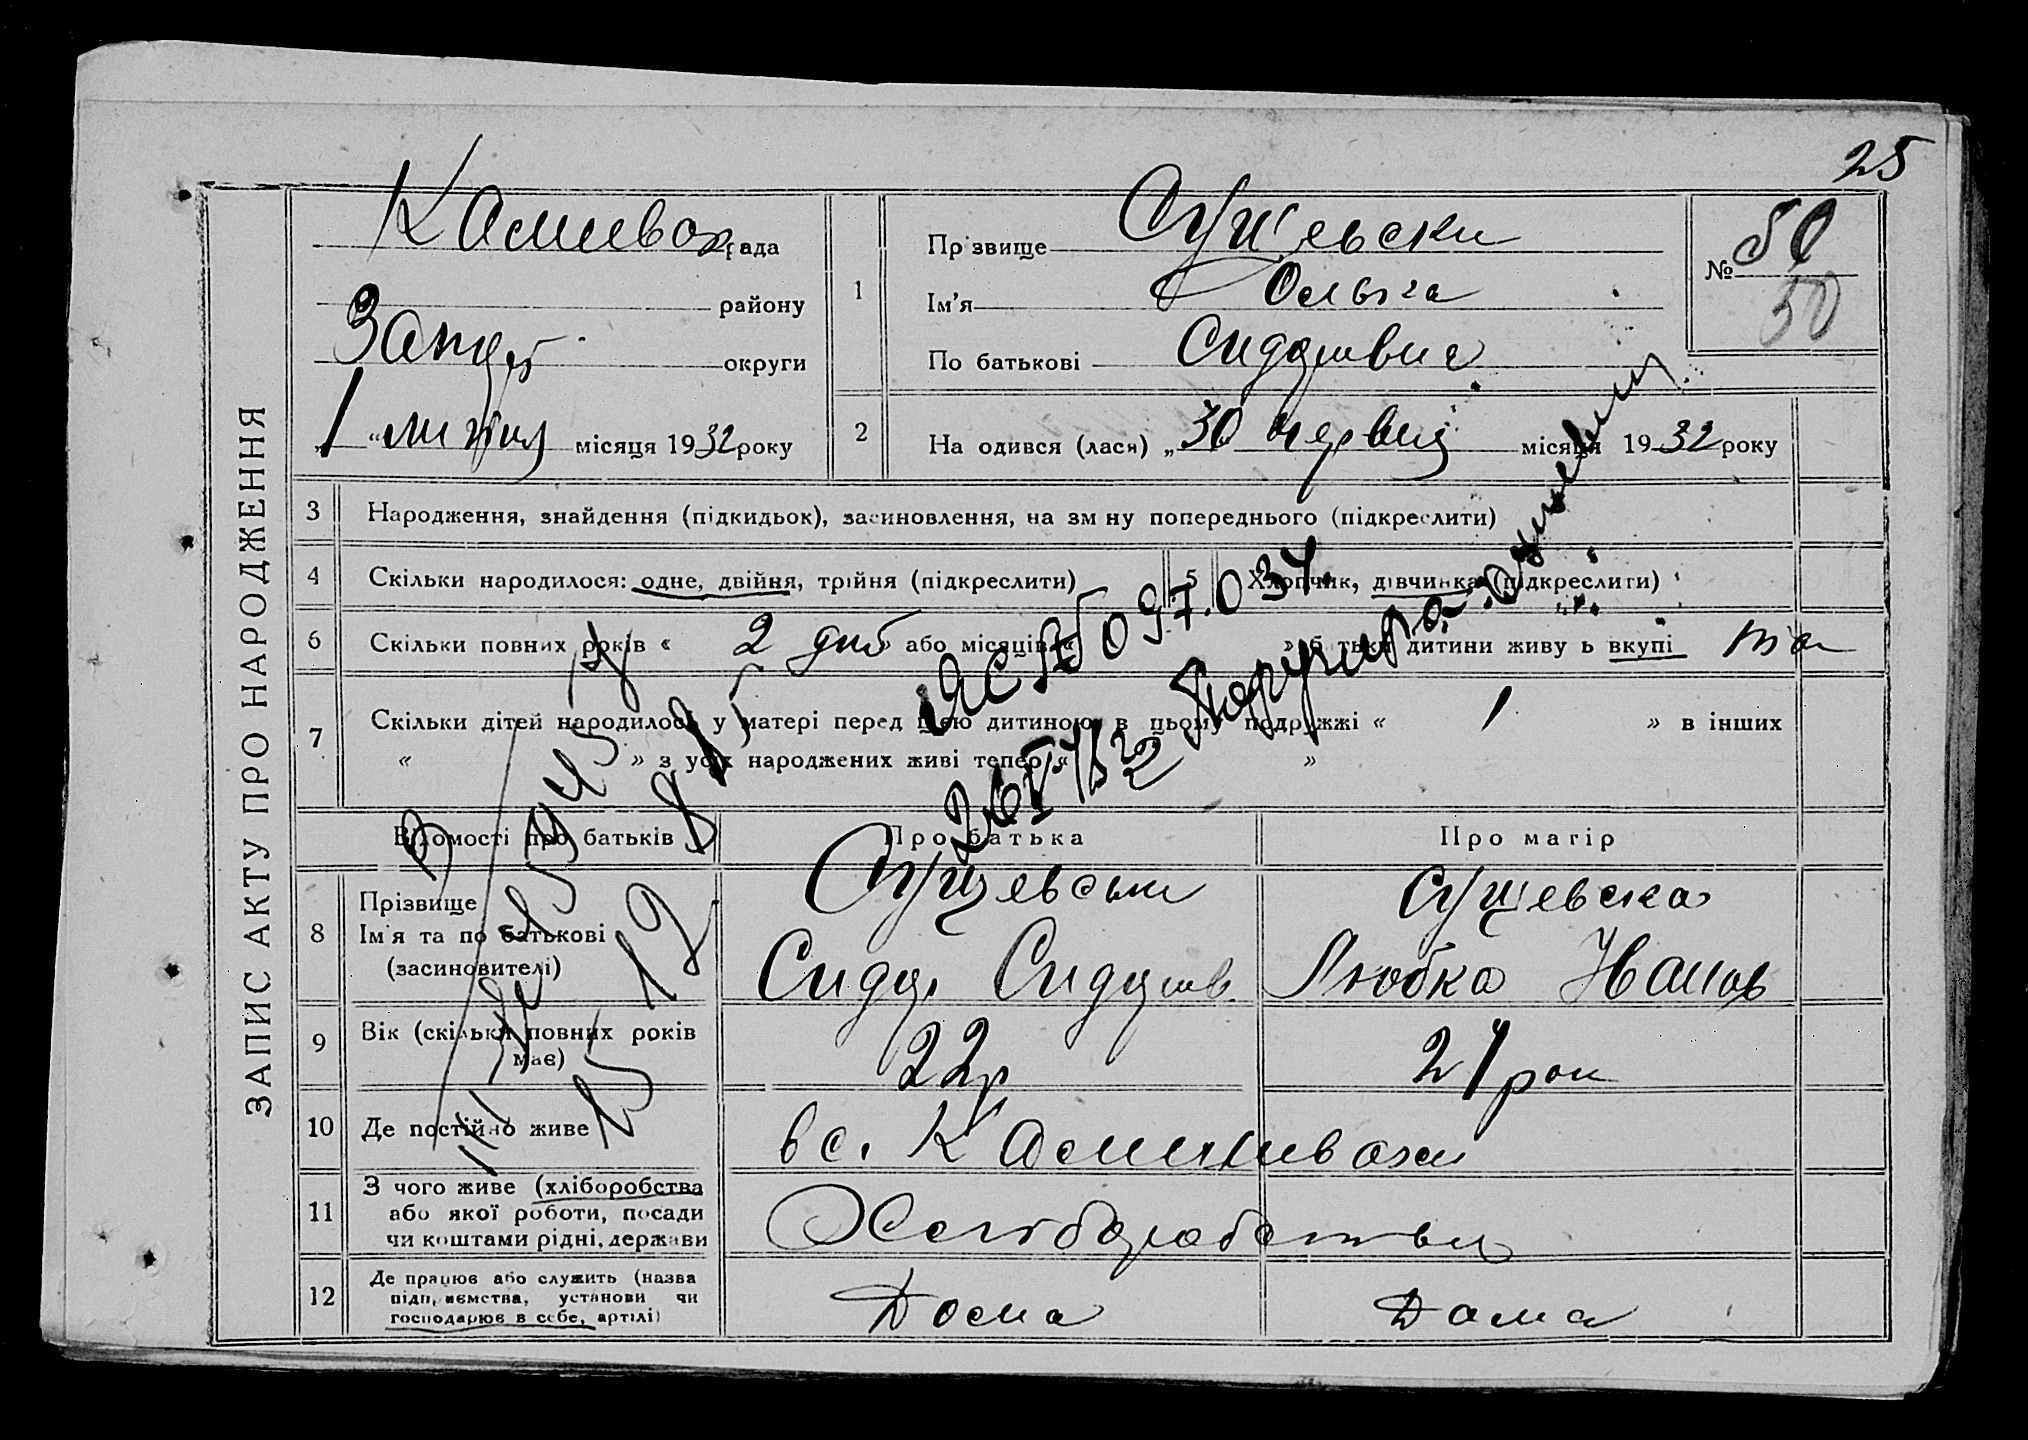 25
ЗАПИС АКТУ ПРО НАРОДЖЕННЯ
рада
району
округи
„1“ липня місяця 1932 року
1
Прізвище Сущевски
Ім’я Ольга
По батькові
№ 50
50
2 На одився (лася) „30 червня місяця 1932 року
3 Народження, знайдення (підкидьок), засиновлення, на зм ну попереднього (підкреслити)
4 Скільки народилося: одне, двійня, трійня (підкреслити)
5 Хлопчик, дівчинка (підкреслити)
6 Скільки повних років « 2 дні або місяців « » б тьки дитини живу ь вкупі так
7 Скільки дітей народилось у матері перед цією дитиною в цьому подружжі « 1 » в інших
« » з усіх народжених живі тепер « »
ЯС № 097.034
Відомості про батьків
Про батька
Про матір
8 Прізвище
Ім’я та по батькові
(засиновителі)
Сущевски
Сидор Сидоров
Сущевска
Любка Иванов
9 Вік (скільки повних років має)
22р
21 рок
10 Де постійно живе
в с.
11 З чого живе (хліборобства
або якої роботи, посади
чи коштами рідні, держави
Хліборобства
12 Де працює або служить (назва
підп,иємства, установи чи
господарює в себе, артілі)
Дома
Дома